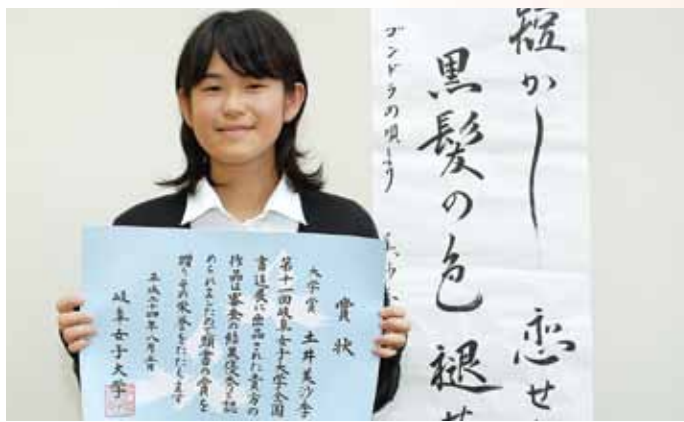 短かし 恋せ
黒髪の色 褪せ
ゴンドラの唄より
賞状
大学賞 土井美沙季
第十一回岐阜女子大学全国
書道展に出品された貴方の
作品は審査の結果優秀と認
められましたので頭書の賞を
贈りその栄誉をたたえます
平成二十四年八月
岐阜女子大学